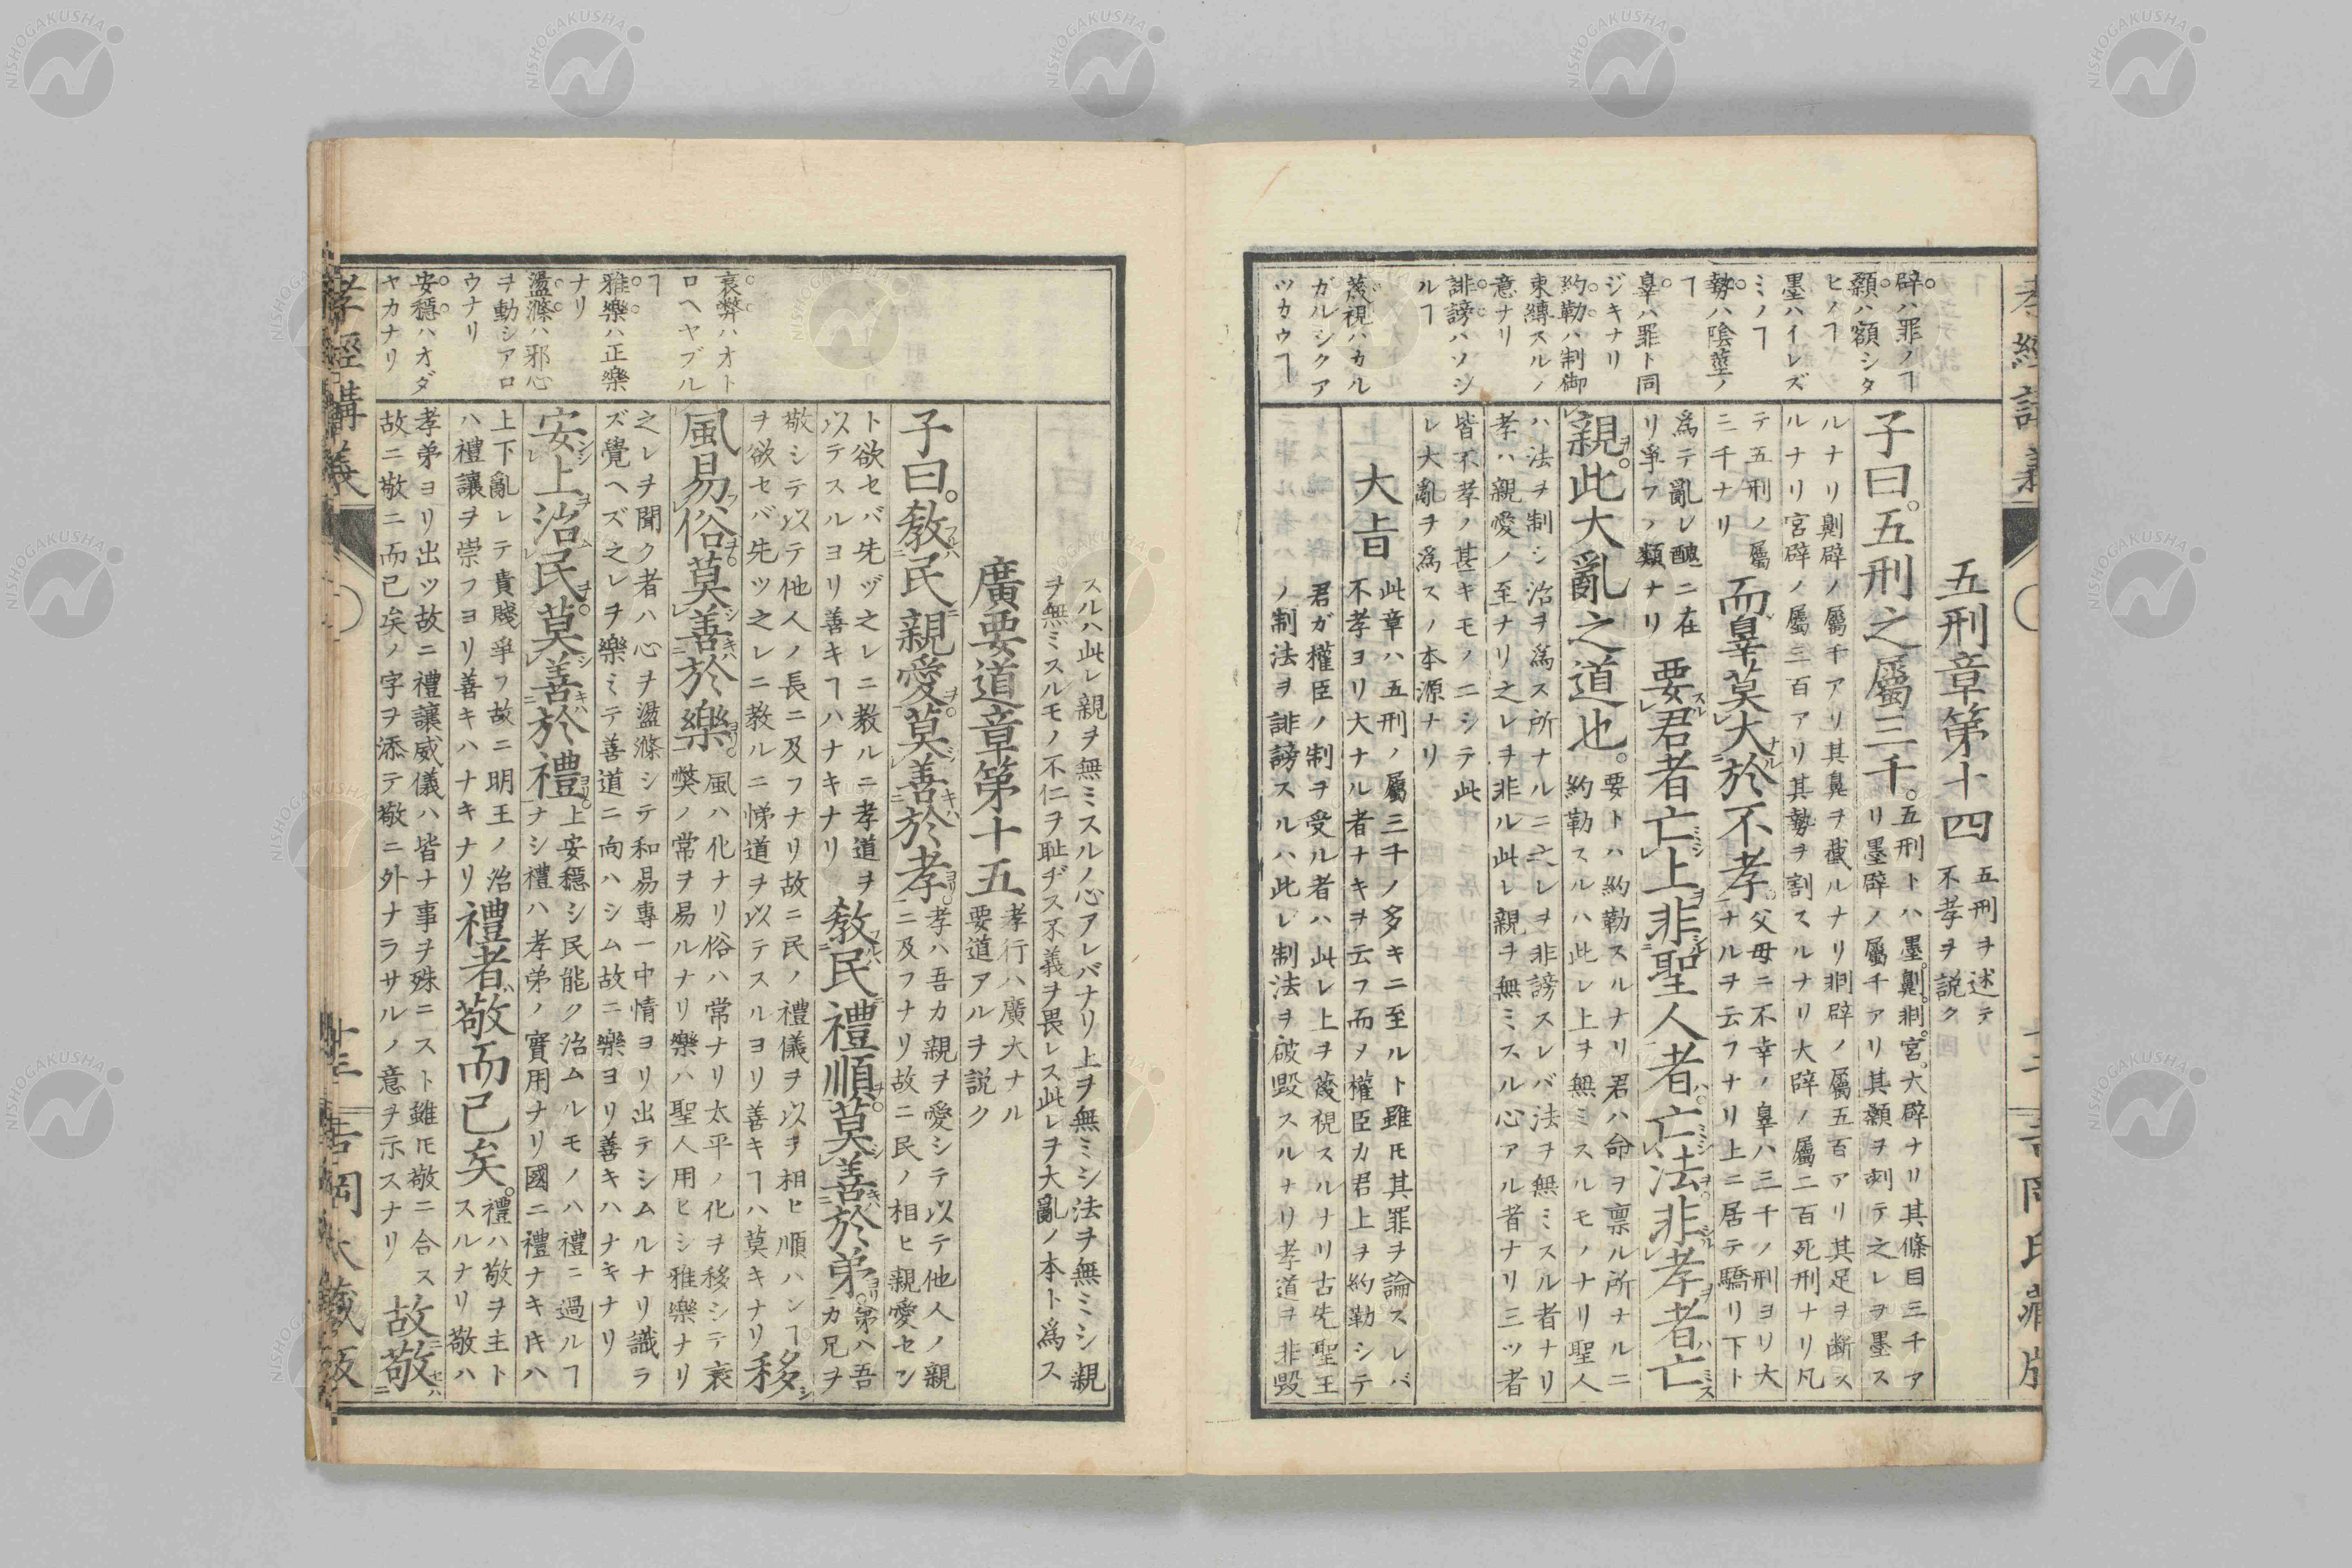 孝經講義
吉岡氏藏版
辟ハ罪ノヿ
顙ハ額シタ
ヒノヿ
墨ハイレズ
ミノヿ
勢ハ陰莖ノ
ヿ
辠ハ罪ト同
ジキナリ
約勒ハ制御
束縛スルノ
意ナリ
誹謗ハソシ
ルヿ
蔑視ハカル
ガルシクア
ツカウヿ
五刑章第十四 五刑ヲ述テ
不孝ヲ説ク
子曰。五刑之屬三千。五刑トハ墨。劓。剕。宮。大辟ナリ其條目三千ア
リ墨辟ノ屬千アリ其顙ヲ刺テ之レヲ墨ス
ルナリ劓辟ノ屬千アリ其鼻ヲ截ルナリ剕辟ノ屬五百アリ其足ヲ断ス
ルナリ宮辟ノ屬三百アリ其勢ヲ割スルナリ大辟ノ屬二百死刑ナリ凡
テ五刑ノ屬
三千ナリ
而辠莫大於不孝。父母ニ不幸ノ辠ハ三千ノ刑ヨリ大
ナルヲ云フナリ上ニ居テ驕リ下ト
爲テ亂レ醜ニ在
リ爭フノ類ナリ
要君者亡上非聖人者。亡法非孝者亡
親。此大亂之道也。要トハ約勒スルナリ君ハ命ヲ禀ル所ナルニ
約勒スルハ此レ上ヲ無ミスルモノナリ聖人
ハ法ヲ制シ治ヲ爲ス所ナルニ之レヲ非謗スレバ法ヲ無ミスル者ナリ
孝ハ親愛ノ至ナリ之レヲ非ル此レ親ヲ無ミスル心アル者ナリ三ツ者
皆不孝ノ甚キモノニシテ此
レ大亂ヲ爲スノ本源ナリ
大旨 此章ハ五刑ノ屬三千ノ多キニ至ルト雖モ其罪ヲ論スレバ
不孝ヨリ大ナル者ナキヲ云フ而ヌ權臣カ君上ヲ約勒シテ
君ガ權臣ノ制ヲ受ル者ハ此レ上ヲ蔑視スルナリ古先聖王
ノ制法ヲ誹謗スルハ此レ制法ヲ破毀スルナリ孝道ヲ非毀
衰弊ハオト
ロヘヤブル
ヿ
雅樂ハ正樂
ナリ
盪滌ハ邪心
ヲ動シアロ
ウナリ
安穏ハオダ
ヤカナリ
スルハ此レ親ヲ無ミスルノ心アレバナリ上ヲ無ミシ法ヲ無ミシ親
ヲ無ミスルモノ不仁ヲ耻ヂス不義ヲ畏レス此レヲ大亂ノ本ト爲ス
廣要道章第十五 孝行ハ廣大ナル
要道アルヲ説ク
子曰。敎民親愛。莫善於孝。孝ハ吾カ親ヲ愛シテ以テ他人ノ親
ニ及フナリ故ニ民ノ相ヒ親愛セン
ト欲セバ先ヅ之レニ教ルニ孝道ヲ
以テスルヨリ善キヿハナキナリ
敎民禮順。莫善於弟。弟ハ吾
カ兄ヲ
敬シテ以テ他人ノ長ニ及フナリ故ニ民ノ禮儀ヲ以ヲ相ヒ順ハンヿ
ヲ欲セバ先ツ之レニ教ルニ悌道ヲ以テスルヨリ善キヿハ莫キナリ
移
風易俗。莫善於樂。風ハ化ナリ俗ハ常ナリ太平ノ化ヲ移シテ衰
弊ノ常ヲ易ルナリ樂ハ聖人用ヒシ雅樂ナリ
之レヲ聞ク者ハ心ヲ盪滌シテ和易專一中情ヨリ出テシムルナリ識ラ
ズ覺ヘズ之レヲ樂ミテ善道ニ向ハシム故ニ樂ヨリ善キハナキナリ
安上治民。莫善於禮。上安穏シ民能ク治ムルモノハ禮ニ過ルヿ
ナシ禮ハ孝弟ノ實用ナリ國ニ禮ナキ𪜈ハ
上下亂レテ貴賤爭フ故ニ明王ノ治
ハ禮讓ヲ崇フヨリ善キハナキナリ
禮者敬而已矣。禮ハ敬ヲ主ト
スルナリ敬ハ
孝弟ヨリ出ツ故ニ禮讓威儀ハ皆ナ事ヲ殊ニスト雖モ敬ニ合ス
故ニ敬ニ而已矣ノ字ヲ添テ敬ニ外ナラサルノ意ヲ示スナリ
故敬
孝經講義
吉岡氏藏版